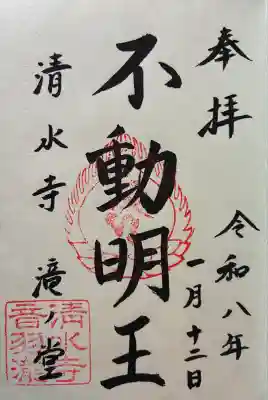 奉拝
令和八年
一月十二日
不動明王
清水寺 滝ノ堂
清水寺
音羽滝